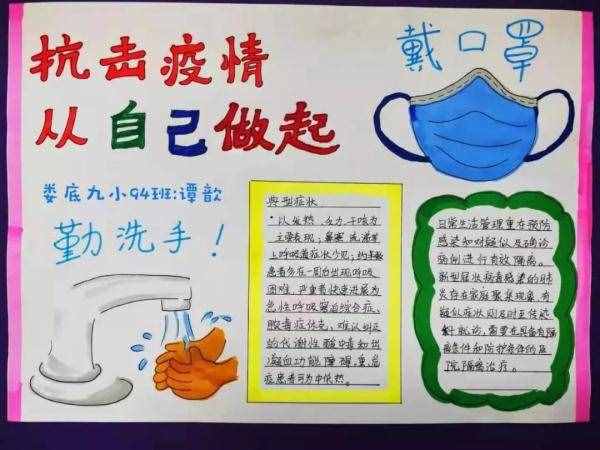 抗击疫情
从自己做起
戴口罩
娄底九小94班:谭歆
勤洗手！
典型症状
·以发热、乏力、干咳为
主要表现；鼻塞、流涕等
上呼吸道症状少见；约半数
患者多在一周后出现呼吸
困难，严重者快速进展为
急性呼吸窘迫综合征、
脓毒症休克、难以纠正
的代谢性酸中毒和出
凝血功能障碍，重、危
症患者可为中低热。
日常生活管理重在预防
感染和对疑似及确诊
病例进行有效隔离。
新型冠状病毒感染的肺
炎存在家庭聚集现象，有
疑似症状则及时至传染
科就诊，需要在具备有隔
离条件和防护条件的医
院隔离治疗。